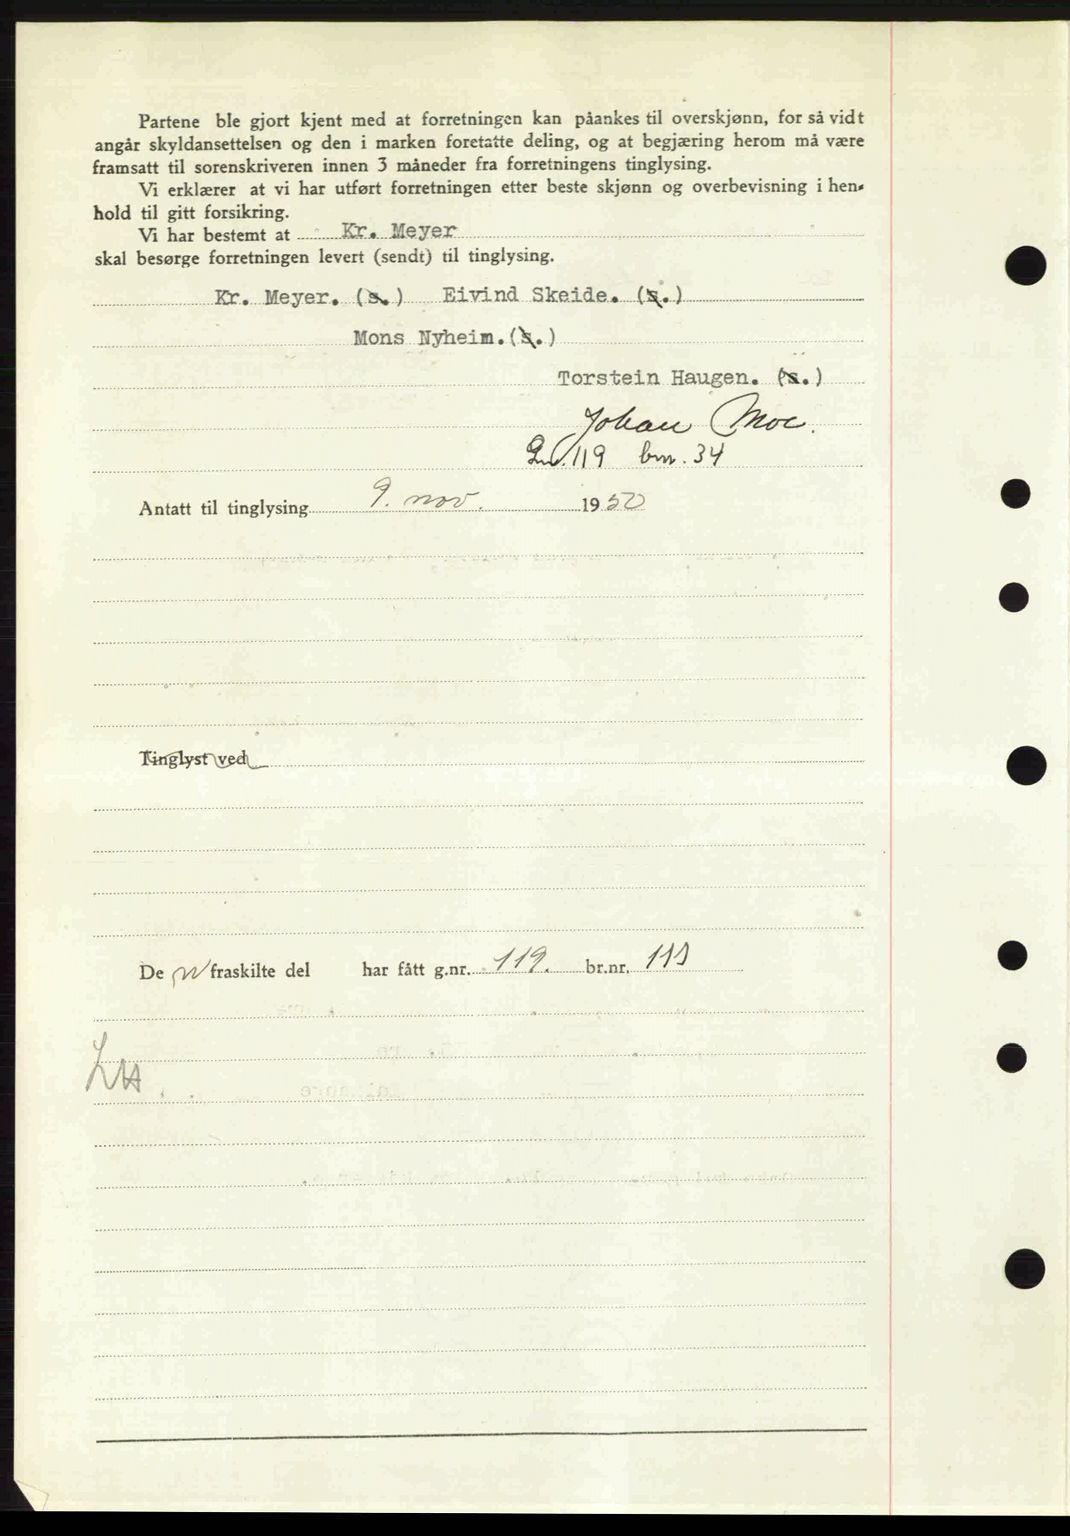 Partene ble gjort kjent med at forretningen kan påankes til overskjønn, for så vidt
angår skyldansettelsen og den i marken foretatte deling, og at begjæring herom må være
framsatt til sorenskriveren innen 3 måneder fra forretningens tinglysing.
Vi erklærer at vi har utført forretningen etter beste skjønn og overbevisning i hen-
hold til gitt forsikring.
Vi har bestemt at Kr. Meyer
skal besørge forretningen levert (sendt) til tinglysing.
Kr. Meyer. (s.) Eivind Skeide. (s.)
Mons Nyheim. (s.)
Torstein Haugen. (s.)
Johan Moe.
Gnr. 119 bnr. 34
Antatt til tinglysing 9. nov. 1950
Tinglyst ved
De n fraskilte del har fått g.nr. 119. br.nr. 111